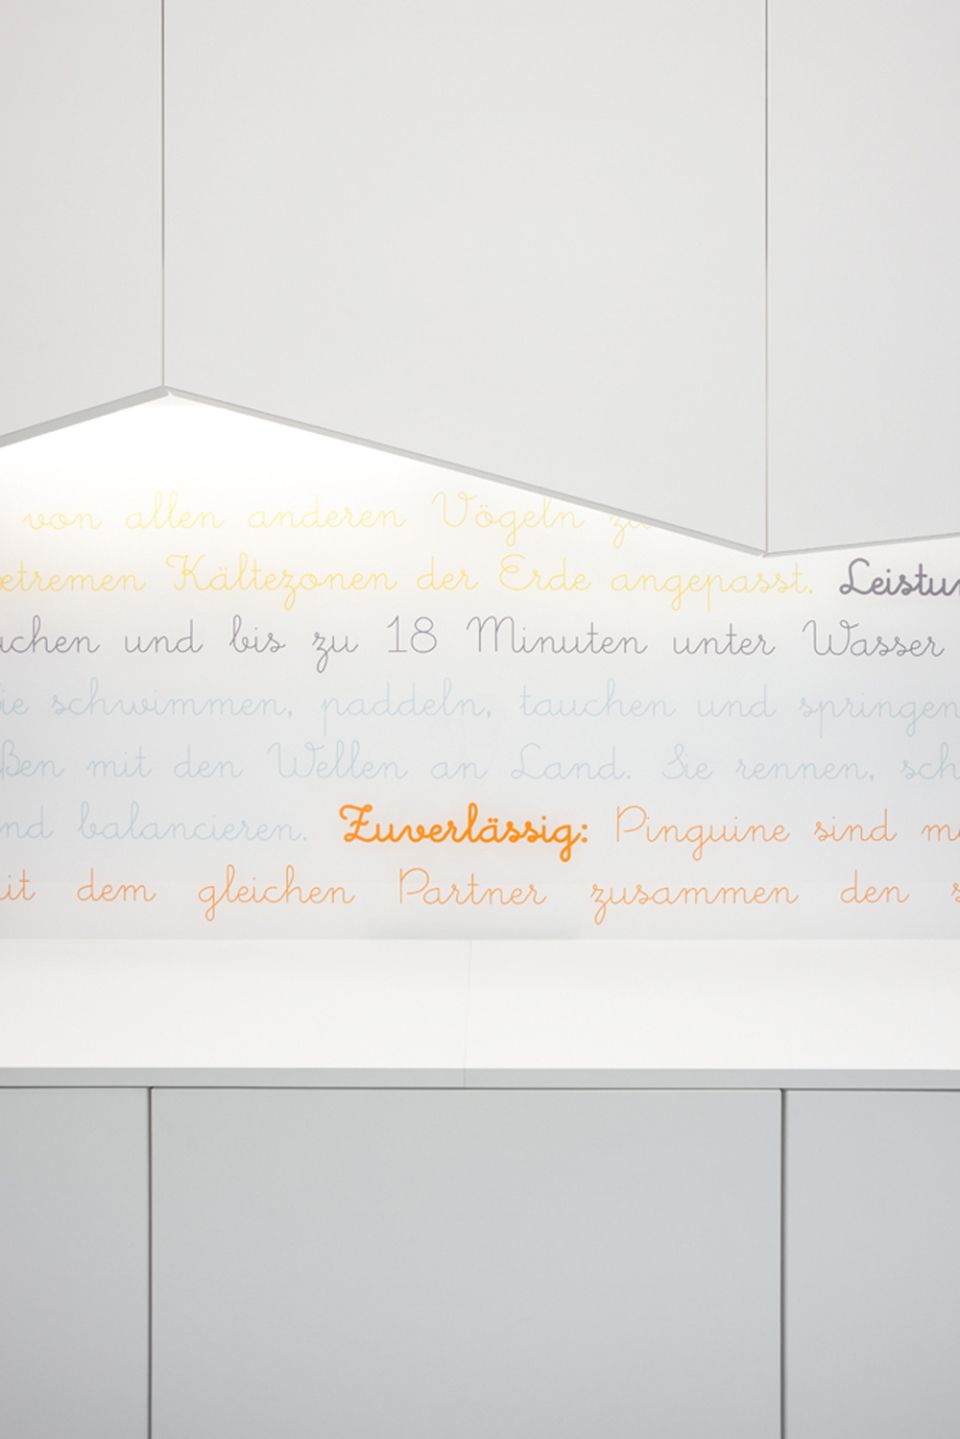 von allen anderen Vögeln zu
xtremen Kältezonen der Erde angepasst. Leistun
uchen und bis zu 18 Minuten unter Wasser
ie schwimmen, paddeln, tauchen und springen
ßen mit den Wellen an Land. Sie rennen, sch
nd balancieren. Zuverlässig: Pinguine sind m
it dem gleichen Partner zusammen den s